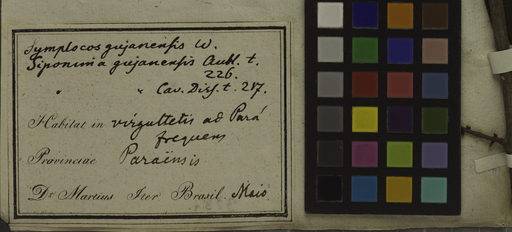 Symplocos gujanensis W.
Siponima gujanensis Aubl. t.
226.
" " Cav. Diss. t. 217.
Habitat in virgultetis ad Pará
frequens
Provinciae Paraënsis
Dr. Martius Iter Brasil. Maio